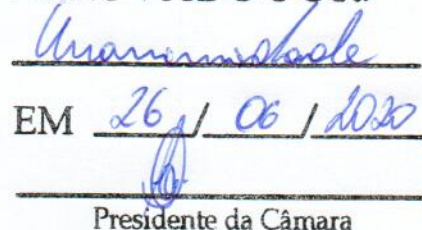 Unanimidade
EM 26 / 06 / 2020
Presidente da Câmara